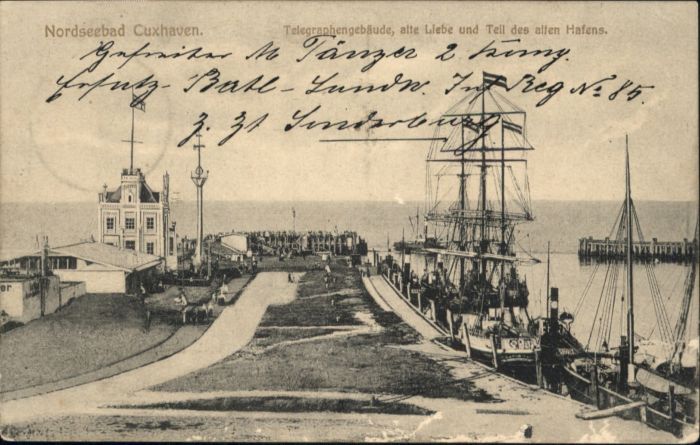 Nordseebad Cuxhaven.
Telegraphengebäude, alte Liebe und Teil des alten Hafens.
Gefreiter M Tänzer 2 Komp.
Ersatz-Batl-Landw. Inf Reg No 85.
z. Zt Sonderburg